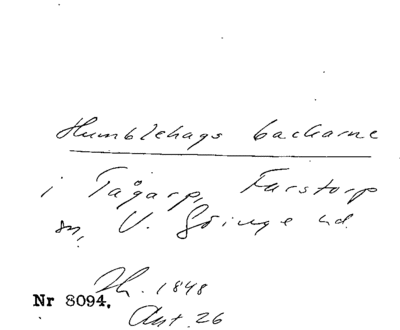 Humblehags backarne
i Tågarp, Farstorp
sn, V. Göinge hd.
Th. 1848
Nr 8094.
Ant. 26